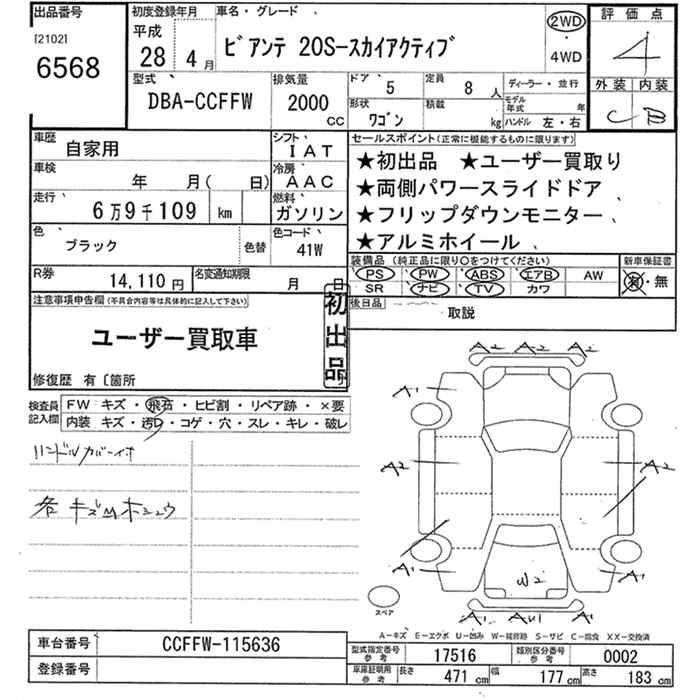 出品番号
[2102]
6568
初度登録年月
平成
28年 4月
車名・グレード
ビアンテ 20S-スカイアクティブ
2WD
・
4WD
評価点
4
外装 内装
C B
型式
DBA-CCFFW
排気量
2000
CC
ドア 5
定員 8人
形状
ワゴン
積載
kg
ディーラー・並行
モデル
年式 年
ハンドル 左・右
車歴
自家用
シフト
IAT
車検
年 月( 日)
冷房
AAC
走行
6万9千109 km
燃料
ガソリン
色
ブラック
色替
色コード
41W
R券
14,110円
名変通知期限
月 日
セールスポイント(正常に機能するものに限ります)
★初出品 ★ユーザー買取り
★両側パワースライドドア
★フリップダウンモニター
★アルミホイール
装備品 (純正品に限り○をつけてください)
PS PW ABS エアB AW
SR ナビ TV カワ
新車保証書
有・無
後日品
取説
注意事項申告欄(不具合内容等は具体的に記入して下さい)
ユーザー買取車
初出品
修復歴 有〔箇所
検査員
記入欄
FW キズ・飛石・ヒビ割・リペア跡・×要
内装 キズ・汚レ・コゲ・穴・スレ・キレ・破レ
ハンドルカバー付
各キズ
A2 A2 A2
A1 A1
A2 A2
A1 A1
W2
A1 A1
スペア
A-キズ E-エクボ U-凹み W-補修跡 S-サビ C-腐食 XX-交換済
車台番号
CCFFW-115636
登録番号
型式指定番号
参考
17516
類別区分番号
参考
0002
車庫証明用
参考
長さ 471cm 幅 177cm 高さ 183cm